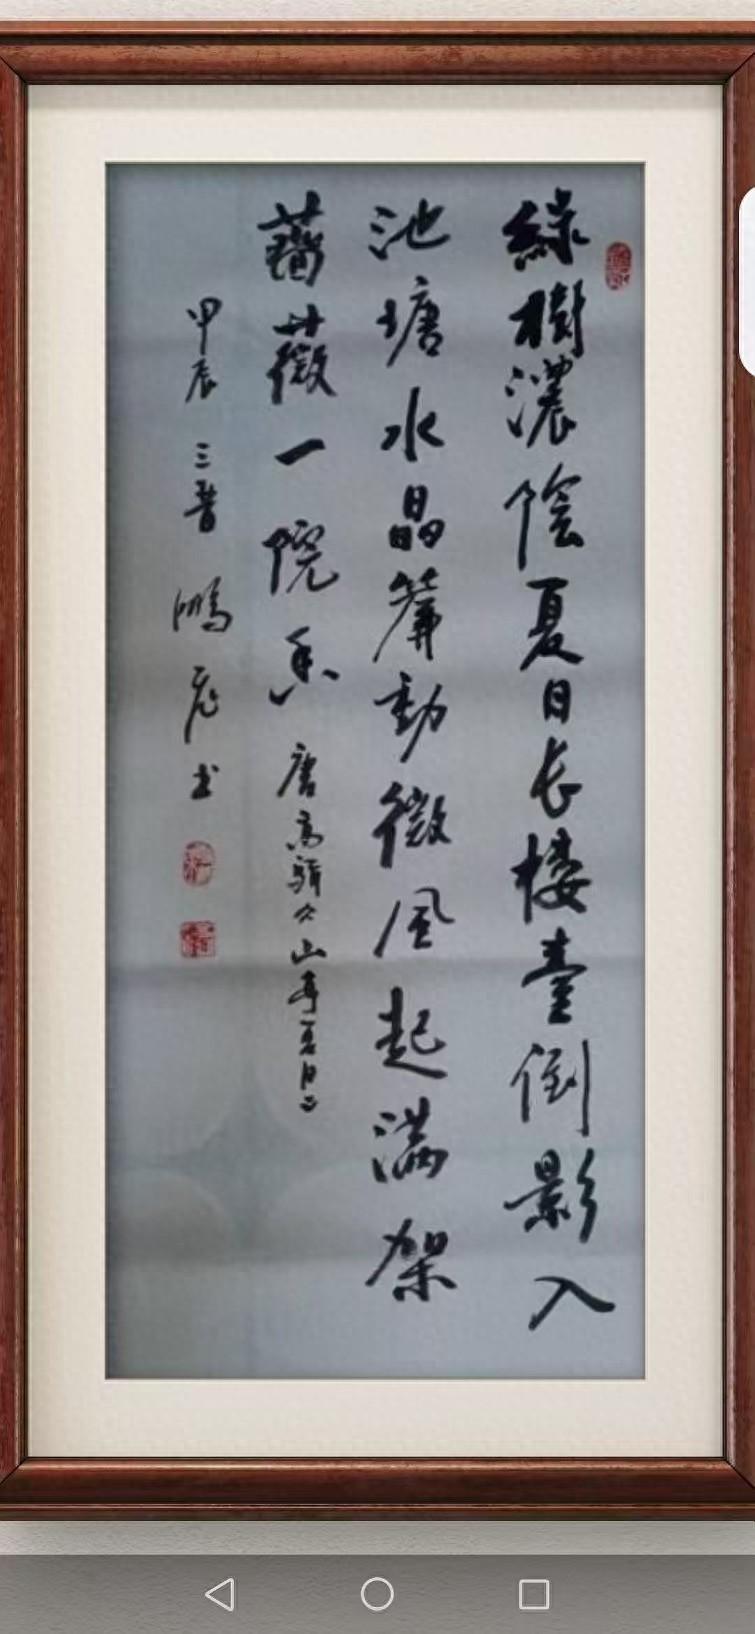 綠樹濃陰夏日长楼臺倒影入
池塘水晶簾動微風起满架
薔薇一院香 唐高駢久山亭夏日
甲辰 三晋 鴻 书